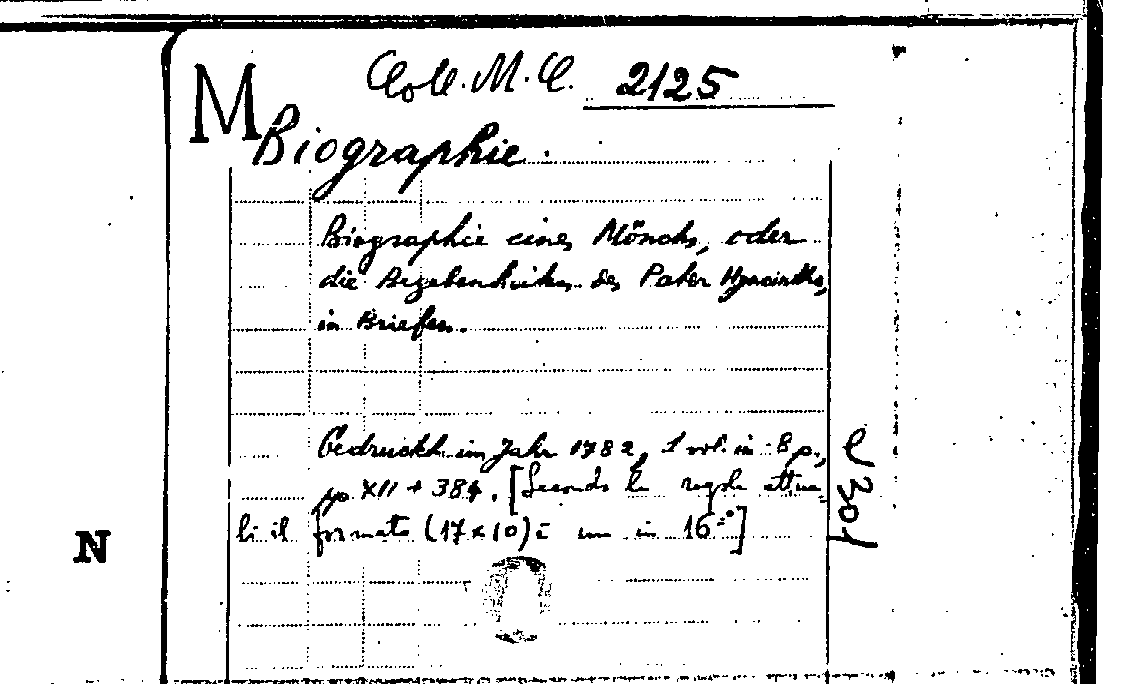 M Coll. M. C. 2125
Biographie.
Biographie eines Mönchs, oder
die Begebenheiten des Pater Hyacinths,
in Briefen.
Gedruckt im Jahr 1782, 1 vol. in 8 p.,
pp. XII + 384. [Secondo le regole attua-
li il formato (17×10) è un in 16°]
l 301
N